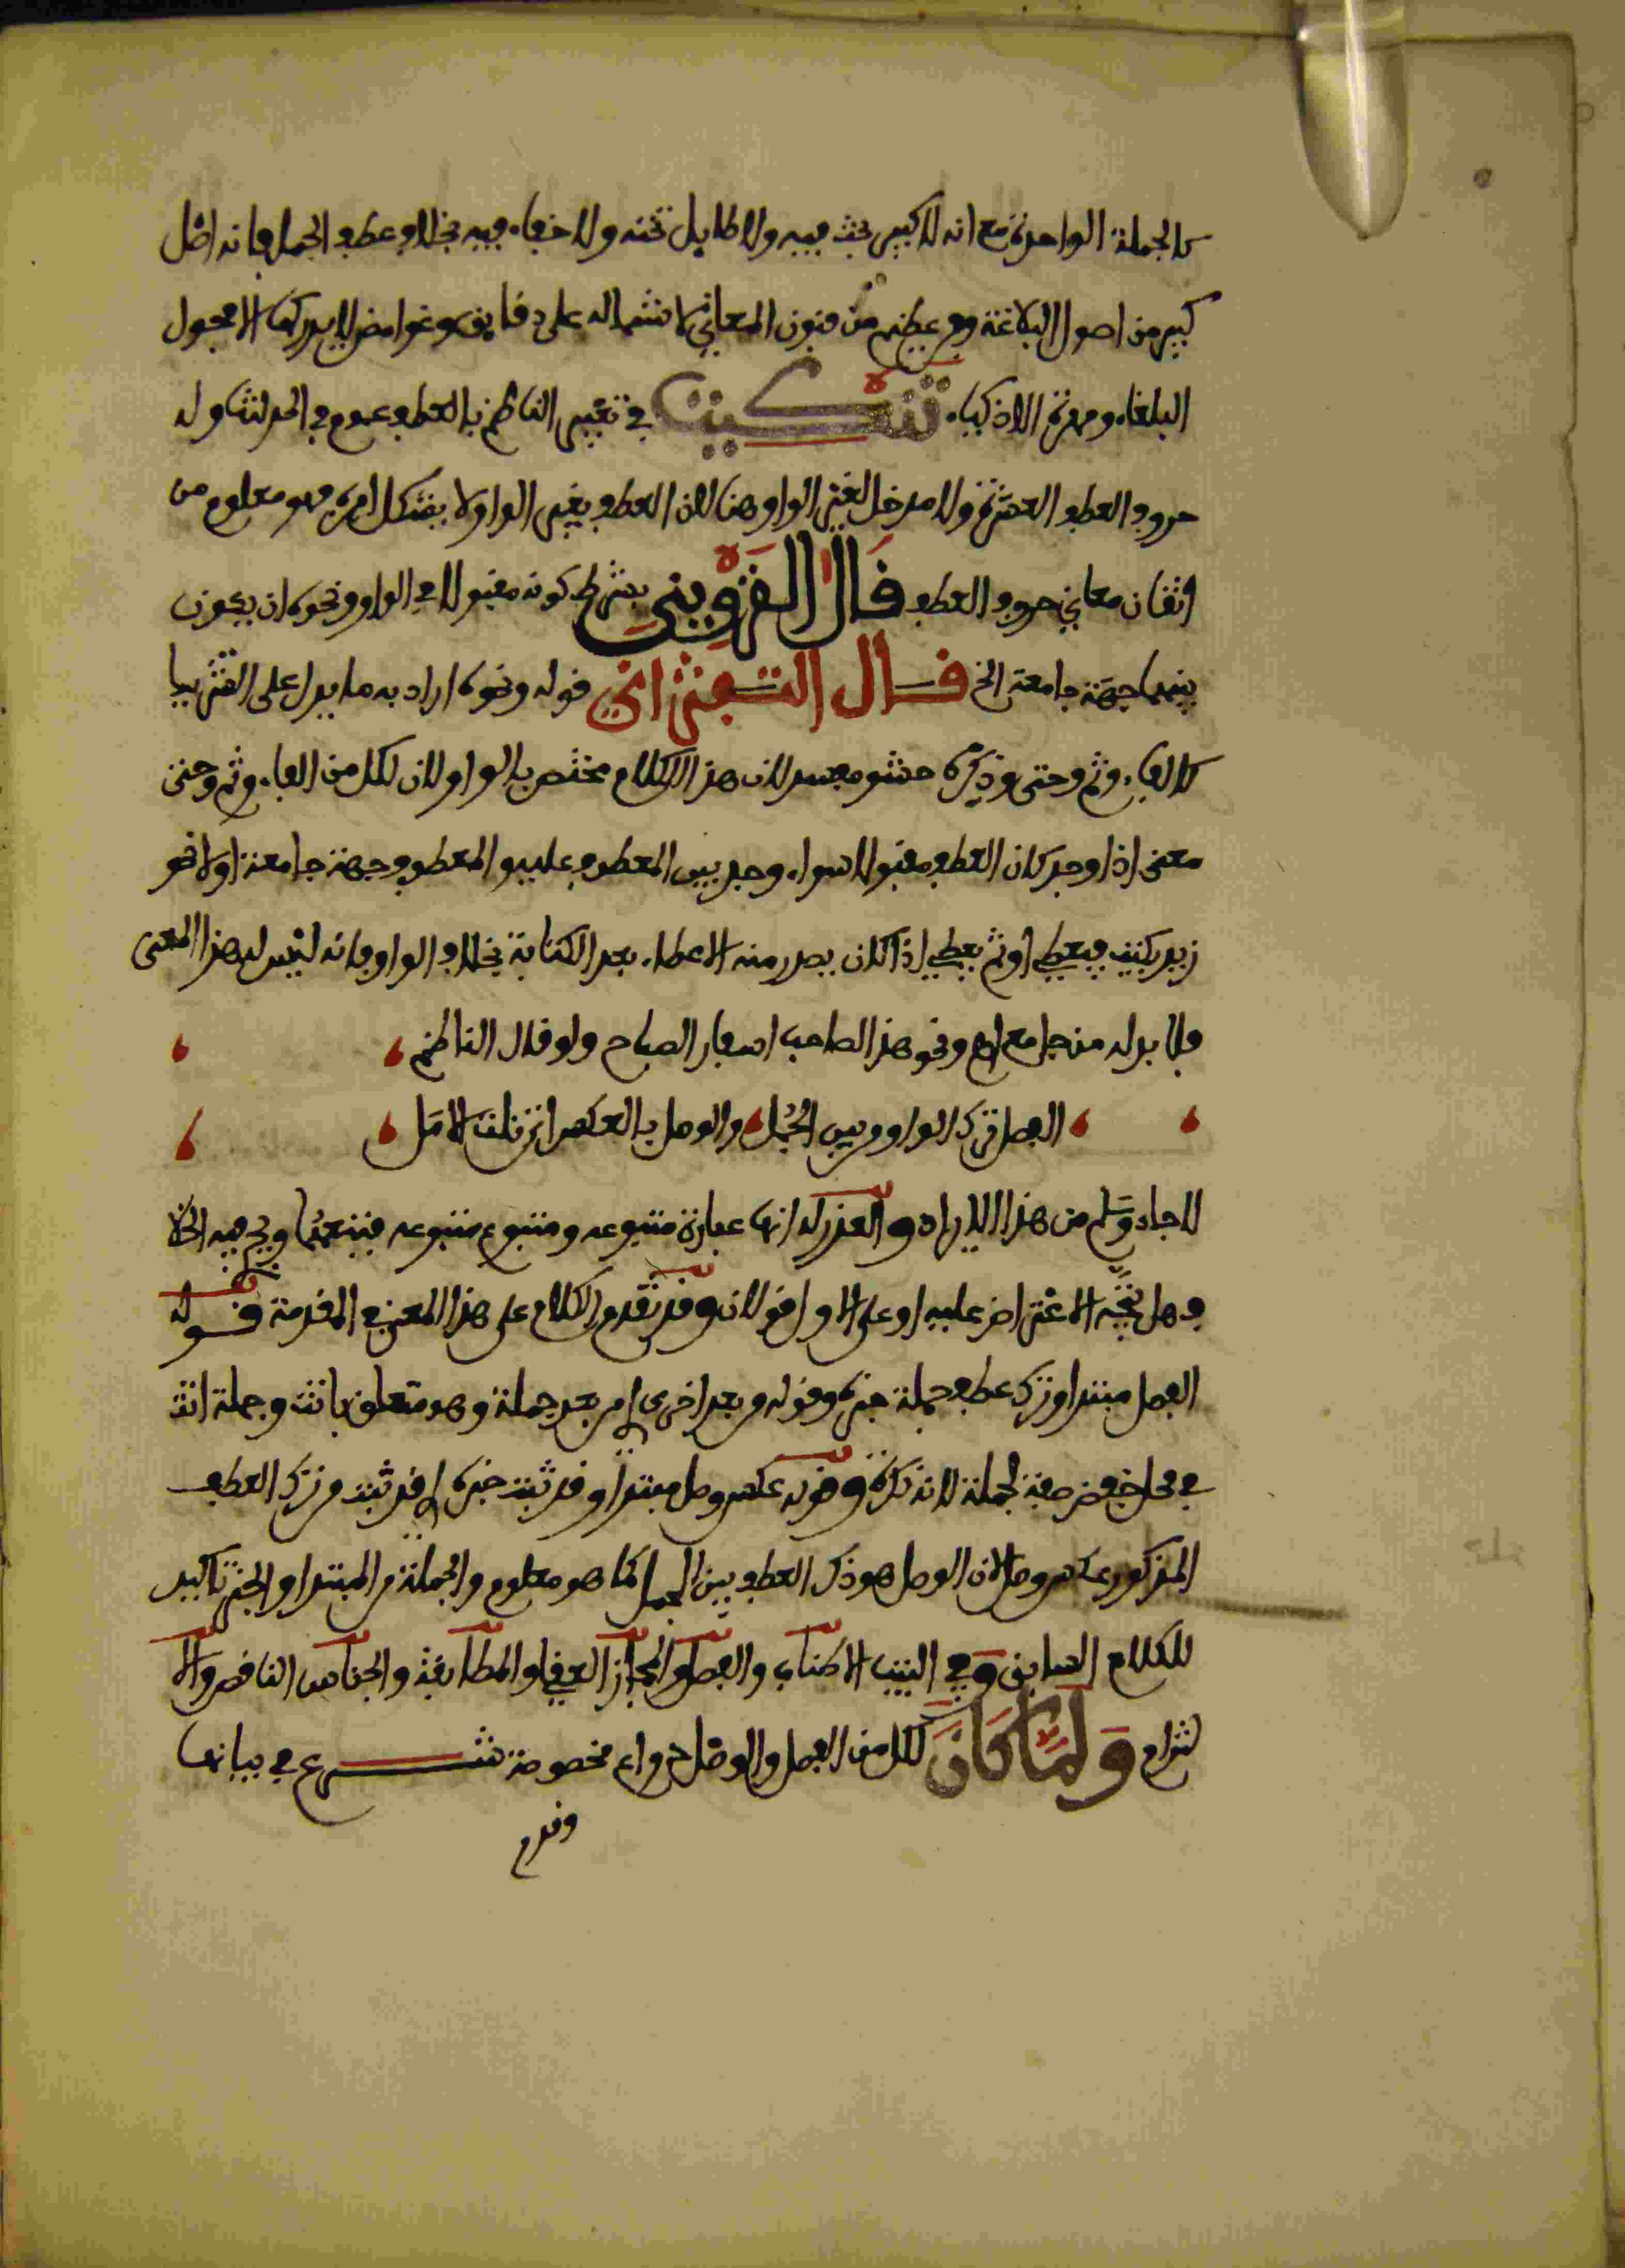 كالجملة الواحدة مع انه لا كبير بحث فيه ولا طايل تحته ولا خفاء فيه بخلاف عطف الجمل فانه اصل
كبير من اصول البلاغة وفن عظيم من فنون المعاني لاشتماله على دقايق وغوامض لا يدركها الا فحول
البلغاء ومهرة الاذكياء تنكيت في تعبير الناظم بالعطف عموم في احد لثنا وله
حروف العطف العشرة ولا مدخل لغير الواو هنا لان العطف بغير الواو لا يفتكل امره فهو معلوم من
اتقان معاني حروف العطف قال القزويني بشرط كونه مقبولا في الواو ونحوه ان يكون
بينهما جهة جامعة الخ قال التفتزاني قوله ونحوه اراد به ما يدل على التشريك
كالفاء وثم وحتى وذكره حشو مفسد لان هذا الكلام مختص بالواو لان لكل من الفاء وثم وحتى
معنى اذا وجد كان العطف مقبولا سواء وجد بين المعطوف عليه والمعطوف جهة جامعة اولا نحو
زيد يكتب فيعطي او ثم يعطي اذا كان يصدر منه الاعطاء بعد الكتابة بخلاف الواو فانه ليس له هذا المعنى
فلا بد له من جامع اهـ ونحو هذا لصاحب اسفار الصباح ولو قال الناظم
الفصل ترك الواو و بين الجمل والوصل بالعكس اتز نلت الامل
لاجاد وسلم من هذا الايراد والعذر له انها عبارة متبوعه ومتبوع متبوعه فتبعهما ويجي فيه الخلا
ف هل يتجه الاعتراض عليه او على الاول قولان وقد تقدم الكلام على هذا المعنى في المقدمة قوله
الفصل مبتدا وترك عطف جملة خبره وقوله من بعد اخرى اي من بعد جملة وهو متعلق باتت وجملة اتت
في محل خفض صفة لجملة لانه نكرة وقوله عكس وصل مبتدا وقد ثبت خبره اي قد ثبت من ترك العطف
المذكور عكس وصل لان الوصل هو ذكر العطف بين الجمل كما هو معلوم والجملة من المبتدا والخبر تاكيد
للكلام السابق وفي البيت الاطناب والفصل والمجاز العقلي والمطابقة والجناس الناقص والا
لتزام ولما كان لكل من الفصل والوصل دواع مخصوصة شرع في بيانها
وقدم